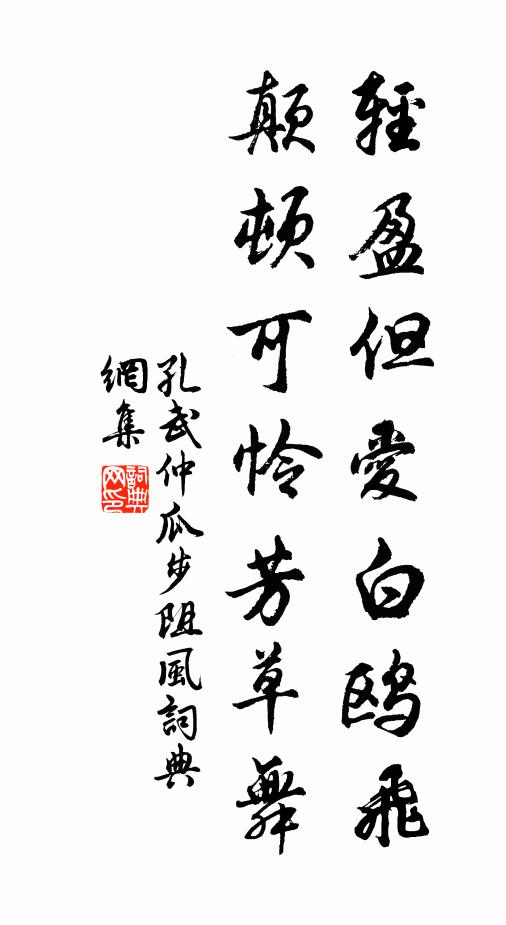 輕盈但愛白鷗飛
顛頓可憐芳草舞
孔武仲瓜步阻風詞典
網集
詞典
网印